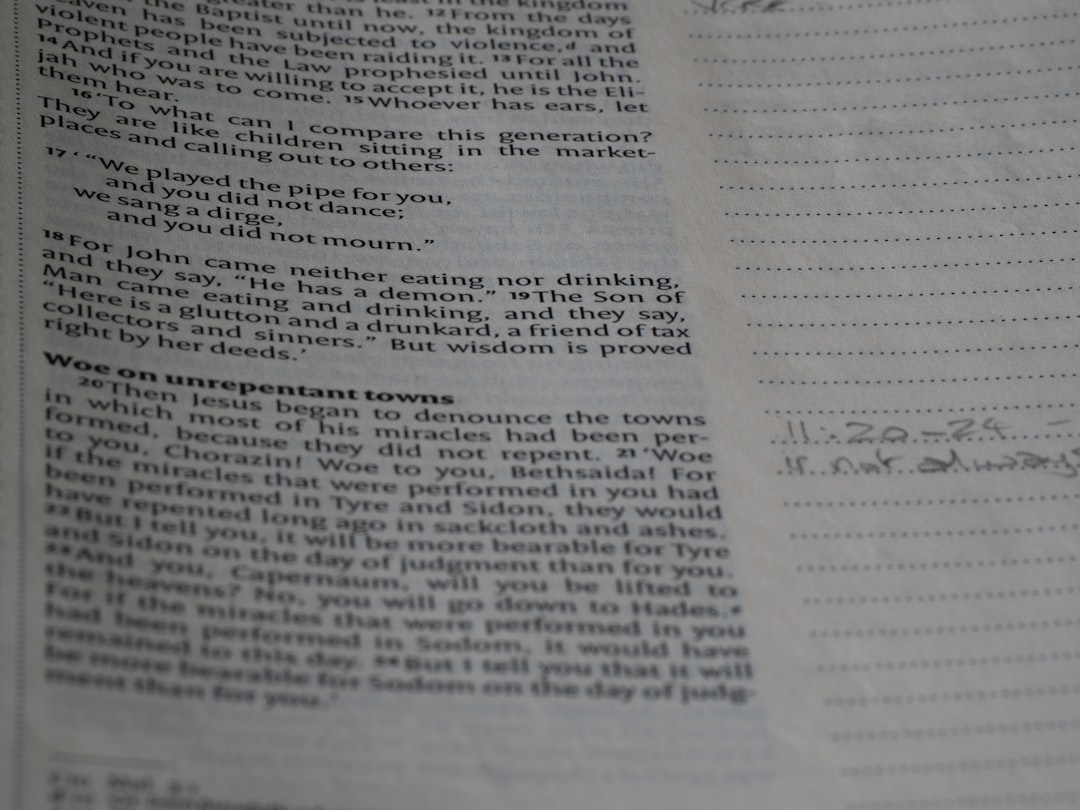 greater than he. 12 From the days
the Baptist until now, the kingdom of
heaven has been subjected to violence,d and
violent people have been raiding it. 13 For all the
Prophets and the Law prophesied until John.
14 And if you are willing to accept it, he is the Eli-
jah who was to come. 15 Whoever has ears, let
them hear.
16 'To what can I compare this generation?
They are like children sitting in the market-
places and calling out to others:
17 ' "We played the pipe for you,
and you did not dance;
we sang a dirge,
and you did not mourn."
18 For John came neither eating nor drinking,
and they say, "He has a demon." 19 The Son of
Man came eating and drinking, and they say,
"Here is a glutton and a drunkard, a friend of tax
collectors and sinners." But wisdom is proved
right by her deeds.'
Woe on unrepentant towns
20 Then Jesus began to denounce the towns
in which most of his miracles had been per-
formed, because they did not repent. 21 'Woe
to you, Chorazin! Woe to you, Bethsaida! For
if the miracles that were performed in you had
been performed in Tyre and Sidon, they would
have repented long ago in sackcloth and ashes.
22 But I tell you, it will be more bearable for Tyre
and Sidon on the day of judgment than for you.
23 And you, Capernaum, will you be lifted to
the heavens? No, you will go down to Hades.e
For if the miracles that were performed in you
had been performed in Sodom, it would have
remained to this day. 24 But I tell you that it will
be more bearable for Sodom on the day of judg-
ment than for you.'
11:20-24 -
is not always